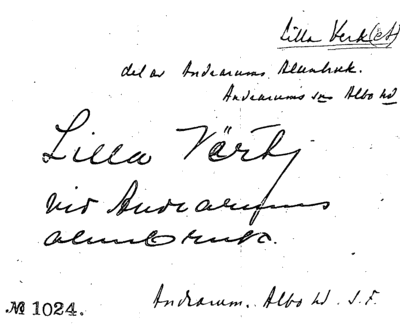 Lilla Verk(et)
del av Andrarums Alunbruk.
Andrarums sn Albo hd
Lilla Värk
vid Andrarums
alunbruk.
№ 1024.
Andrarum. Albo hd. S. F.